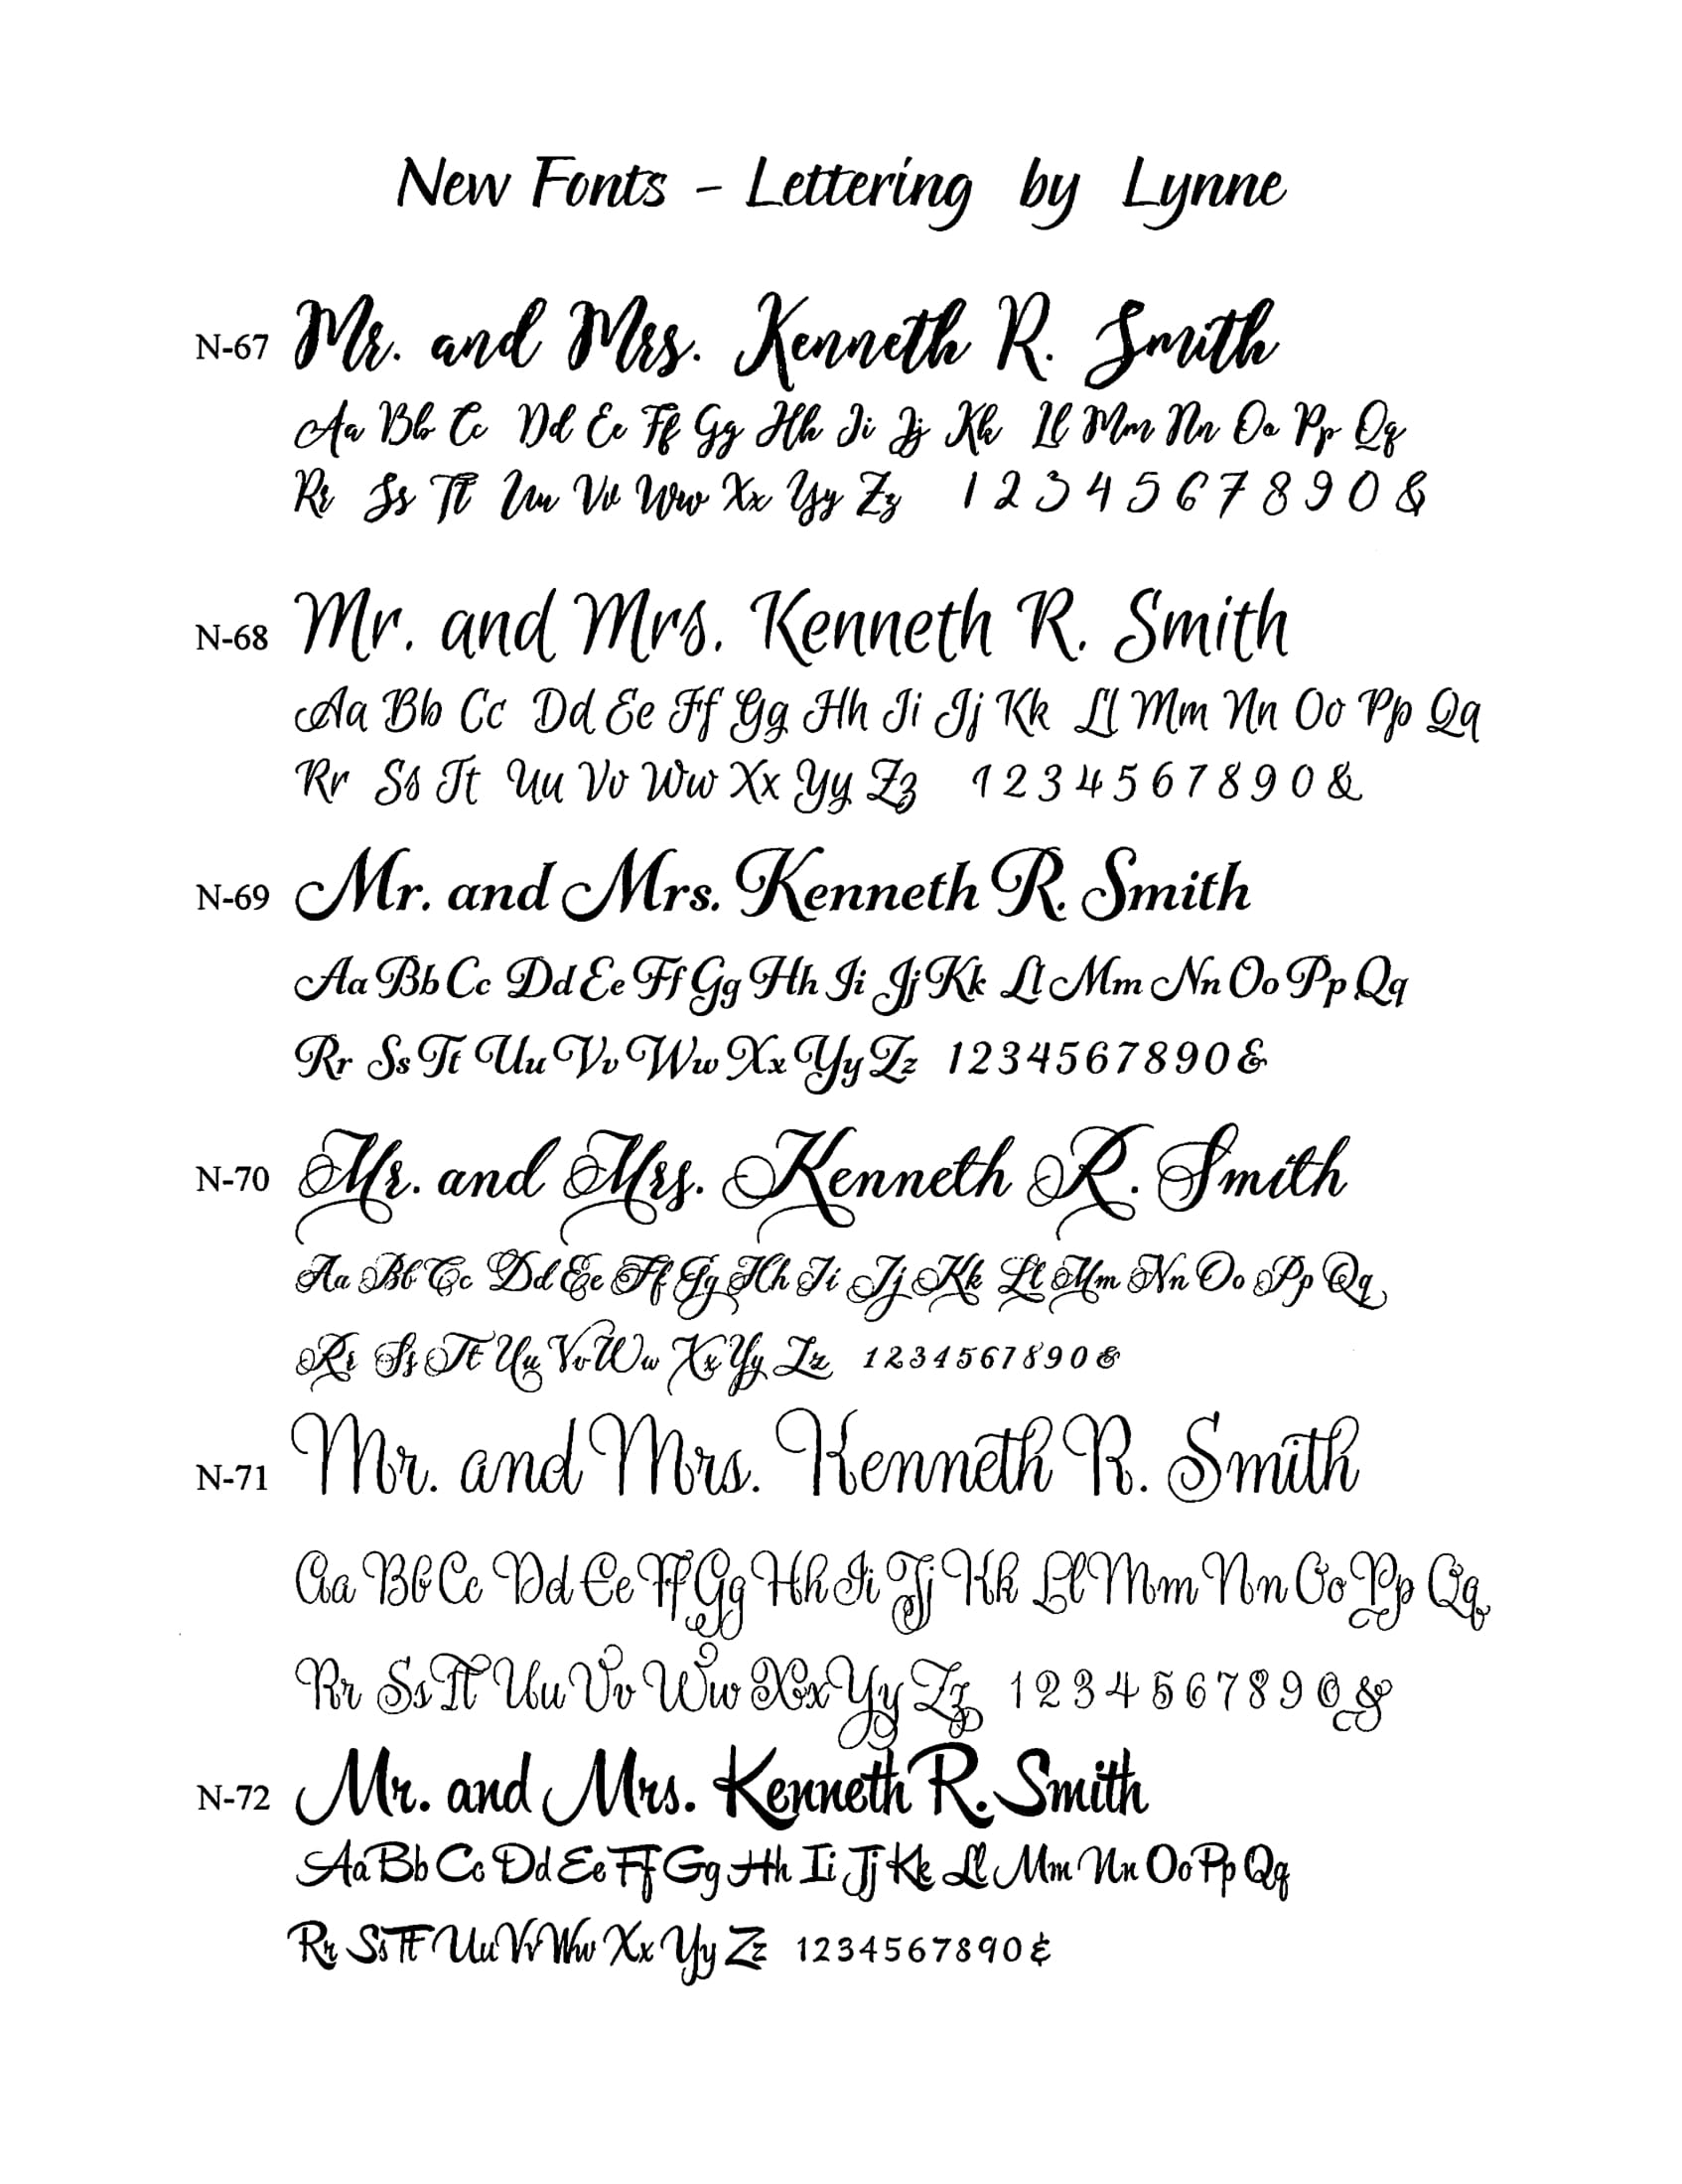 New Fonts - Lettering by Lynne
N-67 Mr. and Mrs. Kenneth R. Smith
Aa Bb Cc Dd Ee Ff Gg Hh Ii Jj Kk Ll Mm Nn Oo Pp Qq
Rr Ss Tt Uu Vv Ww Xx Yy Zz 1 2 3 4 5 6 7 8 9 0 &
N-68 Mr. and Mrs. Kenneth R. Smith
Aa Bb Cc Dd Ee Ff Gg Hh Ii Jj Kk Ll Mm Nn Oo Pp Qq
Rr Ss Tt Uu Vv Ww Xx Yy Zz 1 2 3 4 5 6 7 8 9 0 &
N-69 Mr. and Mrs. Kenneth R. Smith
Aa Bb Cc Dd Ee Ff Gg Hh Ii Jj Kk Ll Mm Nn Oo Pp Qq
Rr Ss Tt Uu Vv Ww Xx Yy Zz 1234567890&
N-70 Mr. and Mrs. Kenneth R. Smith
Aa Bb Cc Dd Ee Ff Gg Hh Ii Jj Kk Ll Mm Nn Oo Pp Qq
Rr Ss Tt Uu Vv Ww Xx Yy Zz 1234567890&
N-71 Mr. and Mrs. Kenneth R. Smith
Aa Bb Cc Dd Ee Ff Gg Hh Ii Jj Kk Ll Mm Nn Oo Pp Qq
Rr Ss Tt Uu Vv Ww Xx Yy Zz 1 2 3 4 5 6 7 8 9 0 &
N-72 Mr. and Mrs. Kenneth R. Smith
Aa Bb Cc Dd Ee Ff Gg Hh Ii Jj Kk Ll Mm Nn Oo Pp Qq
Rr Ss Tt Uu Vv Ww Xx Yy Zz 1234567890&